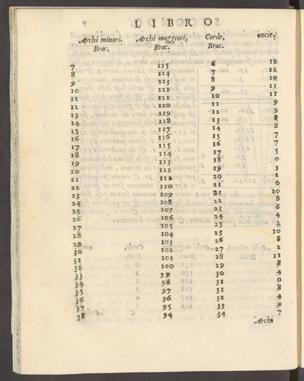 LIBRO
Archi minori. Archi maggiori, Corde, oncie.
Brac. Brac. Brac.
7 125 6 11
8 124 7 11
9 123 8
10 122 9 11
11 121 10 11
12 120 11 9
13 119 12 9
14 118 13 8
15 117 14 8
16 116 15 7
17 115 16 7
18 114 17 5
19 113 18
20 112 19
21 111 20
22 110 21
23 109 21 10
24 108 22 8
25 107 23 6
26 106 24 4
27 105 25 2
28 104 25 10
29 103 26 8
30 102 27
31 101 28
32 100 29 8
33 99 30 4
34 98 31 0
35 97 31 8
36 96 32 4
37 95 33
38 94 34 7
Archi